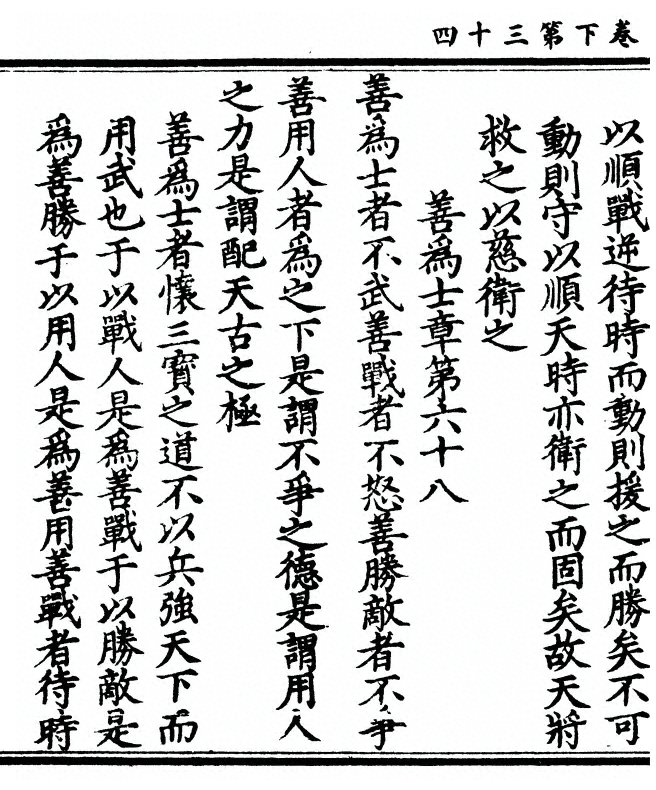 卷下第三十四
以順戰逆待時而動則援之而勝矣不可
動則守以順天時亦衛之而固矣故天將
救之以慈衛之
善爲士章第六十八
善爲士者不武善戰者不怒善勝敵者不爭
善用人者爲之下是謂不爭之德是謂用人
之力是謂配天古之極
善爲士者懷三寳之道不以兵強天下而
用武也于以戰人是爲善戰于以勝敵是
爲善勝于以用人是爲善用善戰者待時